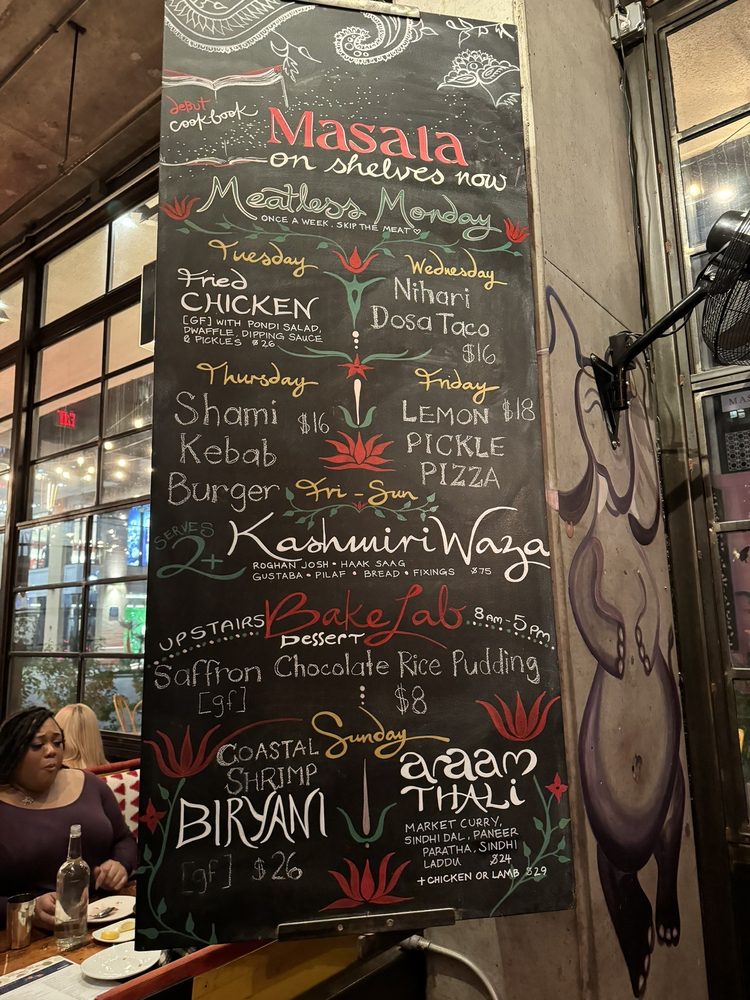 debut
cookbook
Masala
on shelves now
Meatless Monday
ONCE A WEEK, SKIP THE MEAT
Tuesday
Fried
CHICKEN
[GF] WITH PONDI SALAD,
DWAFFLE, DIPPING SAUCE
& PICKLES $26
Wednesday
Nihari
Dosa Taco
$16
Thursday
Shami $16
Kebab
Burger
Friday
LEMON $18
PICKLE
PIZZA
Fri - Sun
SERVES
2+
Kashmiri Waza
ROGHAN JOSH • HAAK SAAG
GUSTABA • PILAF • BREAD • FIXINGS $75
UPSTAIRS Bake Lab 8am-5pm
Dessert
Saffron Chocolate Rice Pudding
[gf] $8
Sunday
COASTAL
SHRIMP
BIRYANI
[gf] $26
araam
THALI
MARKET CURRY,
SINDHI DAL, PANEER
PARATHA, SINDHI
LADDU $24
+ CHICKEN OR LAMB $29
EXIT